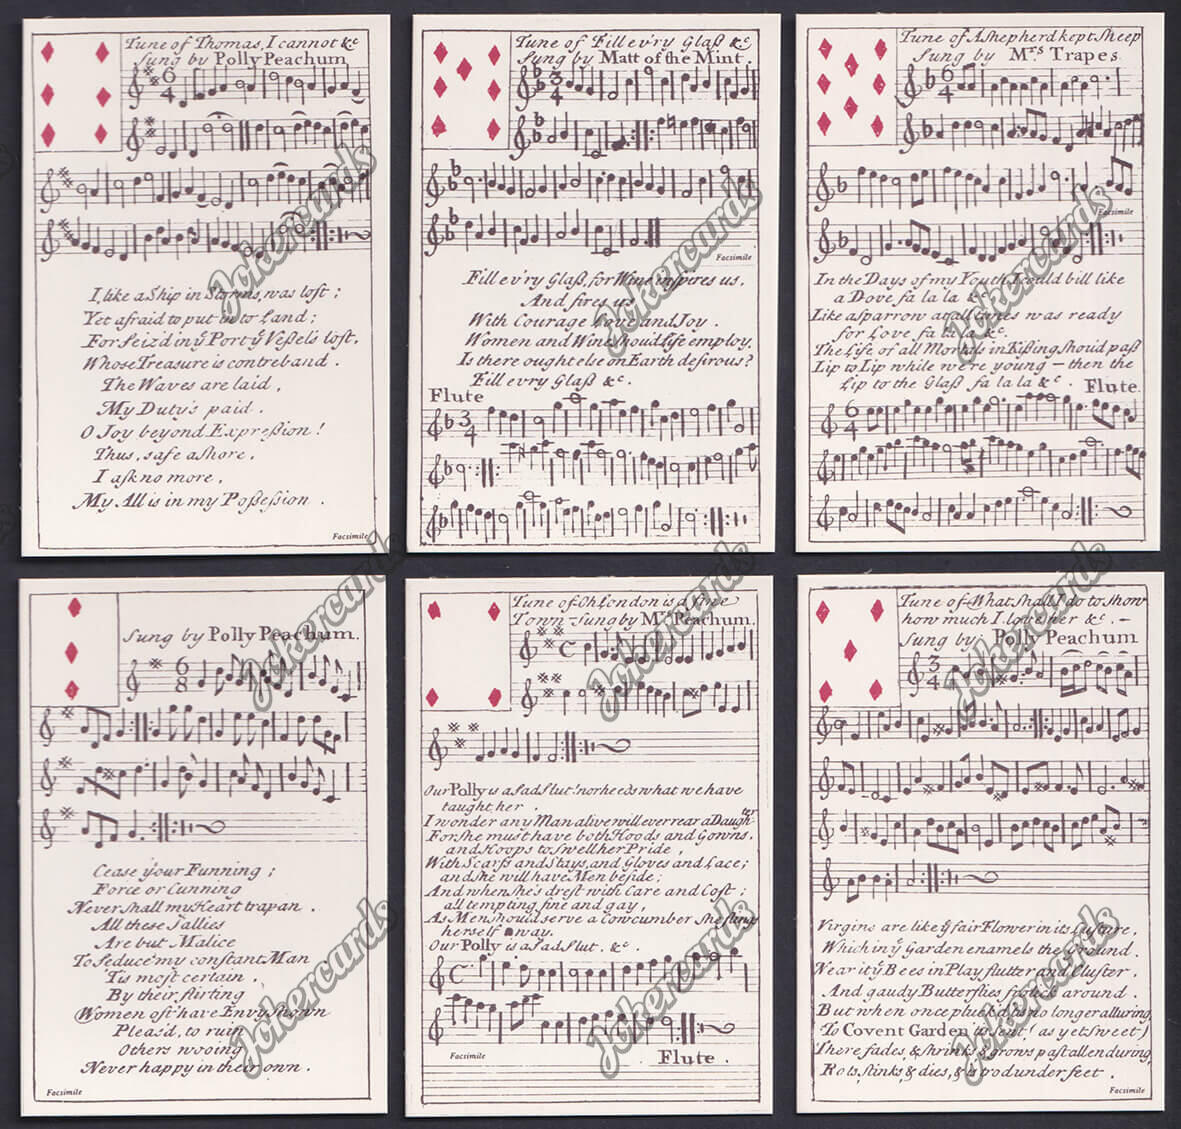 Tune of Thomas, I cannot &c
Sung by Polly Peachum
I, like a Ship in Storms, was lost;
Yet afraid to put in to Land;
For seiz'd in y Port y Vessel's lost,
Whose Treasure is contreband.
The Waves are laid,
My Duty's paid.
O Joy beyond Expreßion!
Thus, safe ashore,
I ask no more,
My All is in my Poßeßion.
Facsimile
Tune of Fill ev'ry Glaß &c
Sung by Matt of the Mint.
3 4
Facsimile
Fill ev'ry Glaß, for Wine inspires us,
And fires us
With Courage Love and Joy.
Women and Wine shoud Life employ,
Is there ought else on Earth desirous?
Fill ev'ry Glaß &c.
Flute
3 4
Tune of A Shepherd kept Sheep
Sung by Mrs Trapes
6 4
Facsimile
In the Days of my Youth I could bill like
a Dove fa la la &c
Like a Sparrow at all times was ready
for Love, fa la la &c.
The Life of all Mortals in Kißing shoud paß
Lip to Lip while we're young – then the
Lip to the Glaß fa la la &c. Flute.
6 4
Sung by Polly Peachum.
6 8
Cease your Funning;
Force or Cunning
Never shall my Heart trapan.
All these Sallies
Are but Malice
To Seduce my constant Man
'Tis most certain,
By their flirting
Women oft' have Envy shown
Pleas'd, to ruin
Others wooing
Never happy in their own.
Facsimile
Tune of Oh London is a fine
Town – Sung by Mrs Peachum.
C
Our Polly is a sad Slut! nor heeds what we have
taught her.
I wonder any Man alive will ever rear a Daughter
For she must have both Hoods and Gowns,
and Hoops to Swell her Pride,
With Scarfs and Stays, and Gloves and Lace;
and she will have Men beside;
And when she's drest with Care and Cost;
all tempting fine and gay,
As Men shou'd serve a Cowcumber She flings
herself away.
Our Polly is a sad Slut. &c.
C
Facsimile
Flute.
Tune of – What shall I do to show
how much I love her &c. –
Sung by Polly Peachum
3 4
Virgins are like y fair Flower in its Lustre,
Which in y Garden enamels the Ground.
Near it y Bees in Play flutter and Cluster,
And gaudy Butterflies frolick around.
But when once pluck'd 'tis no longer alluring,
To Covent Garden 'tis sent! as yet sweet)
There fades, & shrinks & grows past all enduring,
Rots, stinks, & dies, & is trod under feet.
Facsimile
Jokercards
Jokercards
Jokercards
Jokercards
Jokercards
Jokercards
Jokercards
Jokercards
Jokercards